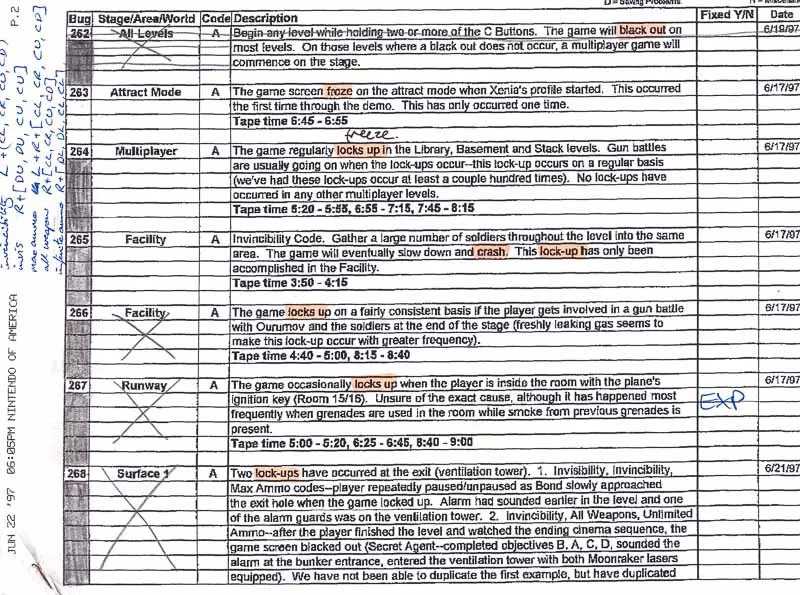 D = Saving Problems
P.2
JUN 22 '97 06:05PM NINTENDO OF AMERICA
Bug Stage/Area/World Code Description Fixed Y/N Date
262 All Levels A Begin any level while holding two or more of the C Buttons. The game will black out on 6/19/97
most levels. On those levels where a black out does not occur, a multiplayer game will
commence on the stage.
263 Attract Mode A The game screen froze on the attract mode when Xenia's profile started. This occurred 6/17/97
the first time through the demo. This has only occurred one time.
Tape time 6:45 - 6:55
freeze.
264 Multiplayer A The game regularly locks up in the Library, Basement and Stack levels. Gun battles 6/17/97
are usually going on when the lock-ups occur--this lock-up occurs on a regular basis
(we've had these lock-ups occur at least a couple hundred times). No lock-ups have
occurred in any other multiplayer levels.
Tape time 5:20 - 5:55, 6:55 - 7:15, 7:45 - 8:15
265 Facility A Invincibility Code. Gather a large number of soldiers throughout the level into the same 6/17/97
area. The game will eventually slow down and crash. This lock-up has only been
accomplished in the Facility.
Tape time 3:50 - 4:15
266 Facility A The game locks up on a fairly consistent basis if the player gets involved in a gun battle 6/17/97
with Ourumov and the soldiers at the end of the stage (freshly leaking gas seems to
make this lock-up occur with greater frequency).
Tape time 4:40 - 5:00, 8:15 - 8:40
267 Runway A The game occasionally locks up when the player is inside the room with the plane's 6/17/97
ignition key (Room 15/16). Unsure of the exact cause, although it has happened most
frequently when grenades are used in the room while smoke from previous grenades is
present.
EXP
Tape time 5:00 - 5:20, 6:25 - 6:45, 8:40 - 9:00
268 Surface 1 A Two lock-ups have occurred at the exit (ventilation tower). 1. Invisibility, Invincibility, 6/21/97
Max Ammo codes--player repeatedly paused/unpaused as Bond slowly approached
the exit hole when the game locked up. Alarm had sounded earlier in the level and one
of the alarm guards was on the ventilation tower. 2. Invincibility, All Weapons, Unlimited
Ammo--after the player finished the level and watched the ending cinematic sequence, the
game screen blacked out (Secret Agent--completed objectives B, A, C, D, sounded the
alarm at the bunker entrance, entered the ventilation tower with both Moonraker lasers
equipped). We have not been able to duplicate the first example, but have duplicated